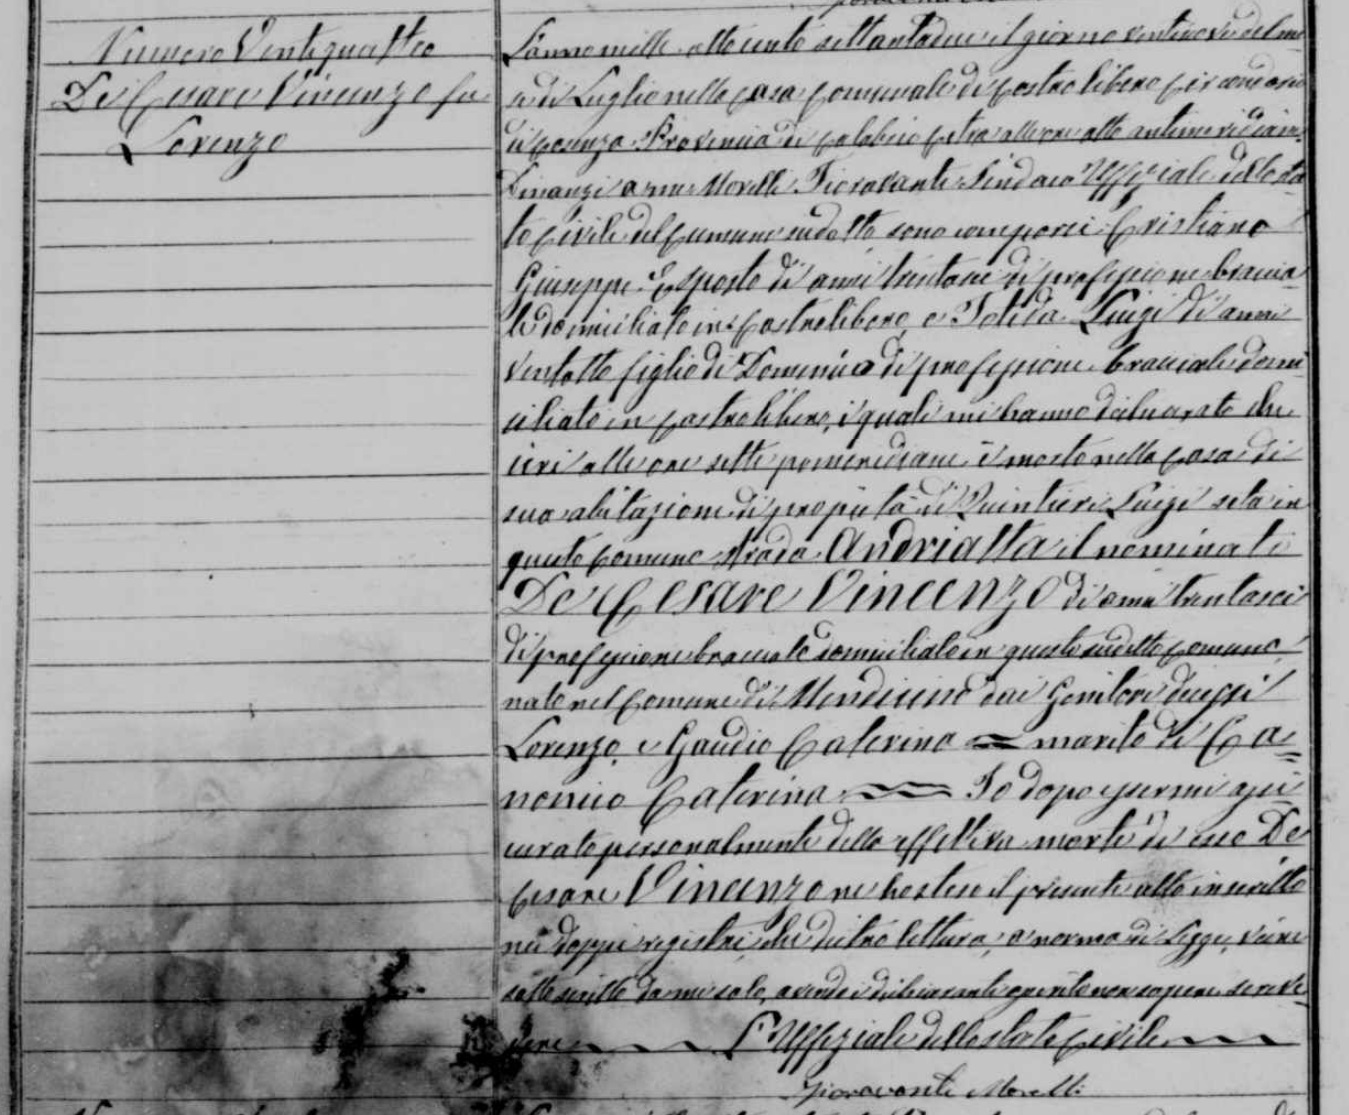 Numero Ventiquattro
De Cesare Vincenzo fu
Lorenzo
L'anno mille ottocento settantadue il giorno ventinove del me
se di Luglio nella casa Comunale di Castrolibero Circondario
di Cosenza Provincia di Calabria Citra alle ore otto antimeridiane
Dinanzi a me Morelli Fioravante Sindaco Uffiziale dello sta
to Civile del Comune sudetto sono comparsi Cristiano
Giuseppe Esposto di anni trentasei di professione braccia
le domiciliato in Castrolibero e Luigi di anni
ventotto figlio di Domenico di professione bracciale domi
ciliato in Castrolibero, i quali mi hanno dichiarato che
ieri alle ore sette pomeridiane è morto nella casa di
sua abitazione di proprietà di Quintieri Luigi sita in
questo Comune strada Andriotta il nominato
De Cesare Vincenzo di anni trentasei
di professione bracciale domiciliato in questo sudetto Comune,
nato nel Comune di Mendicino dai Genitori
Lorenzo, e Gaudio Caterina = marito di Ca=
nonico Caterina Io dopo essermi assi
curato personalmente della effettiva morte di esso De
Cesare Vincenzo ne ho steso il presente atto inscritto
nei doppi registri, che dietro lettura, a norma di Legge, viene
sottoscritto da me solo, avendo i dichiaranti asserito non sapere scrive
re
L'Uffiziale dello stato Civile
Fioravante Morelli